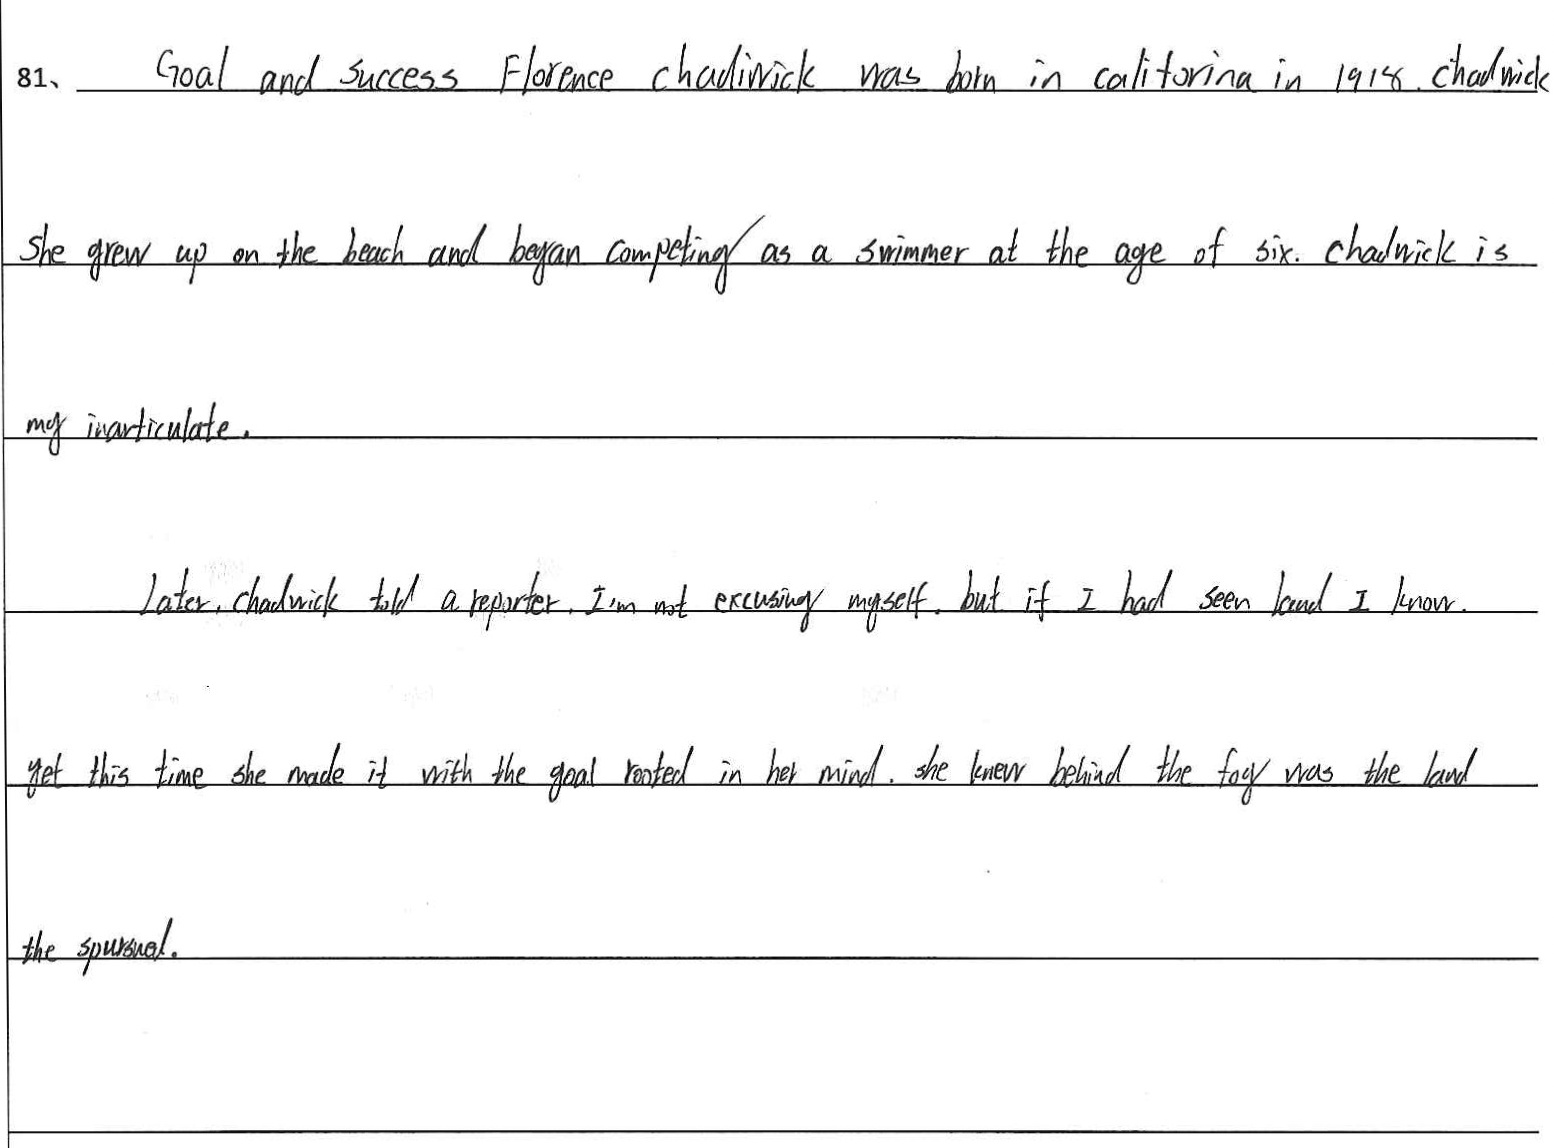 81、 Goal and success Florence chadiwick was born in calitorina in 1918. chadwick
she grew up on the beach and began competing as a swimmer at the age of six. chadwick is
my inarticulate.
Later, chadwick told a reporter. I'm not excusing myself. but if I had seen land I know.
yet this time she made it with the goal rooted in her mind. she knew behind the fog was the land
the spursual.